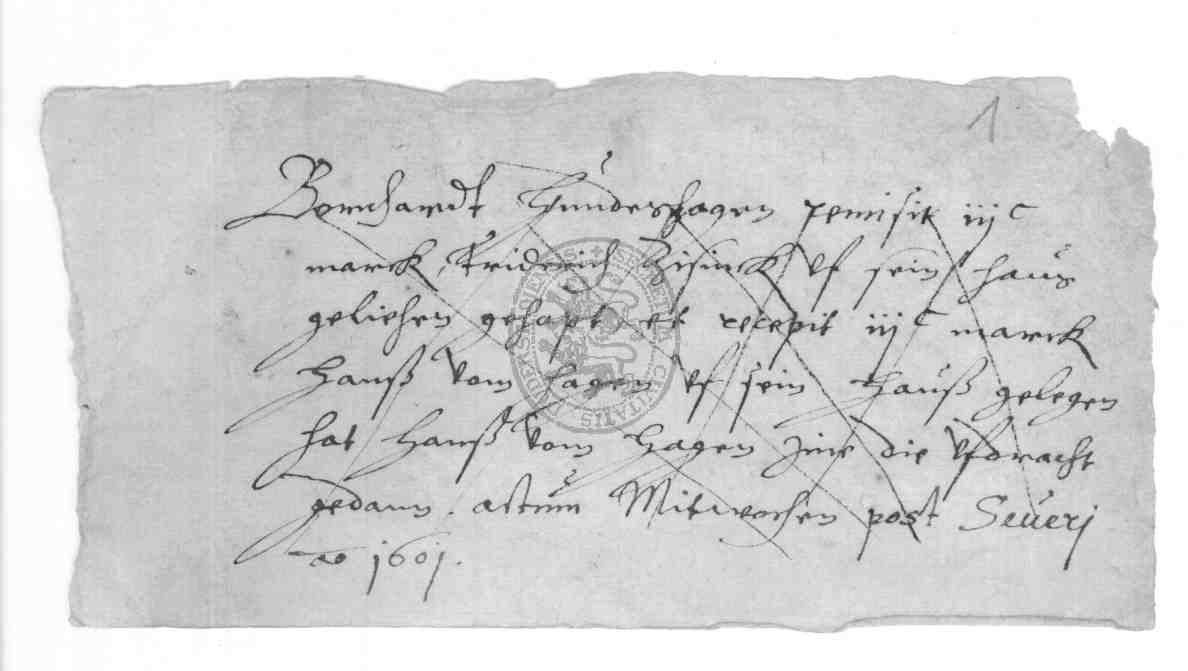 1
Bernhardt Hundeshagen remisit iijc
marck, Friderich Zisinck vf sein haus
geliehen gehapt et recepit iijc marck
Hanß vom Hagen vf sein Hauß gelegen
hat Hanß vom Hagen Jme die vfdracht
gedann. actum Mitwochen post Seuerj
ao 1601.